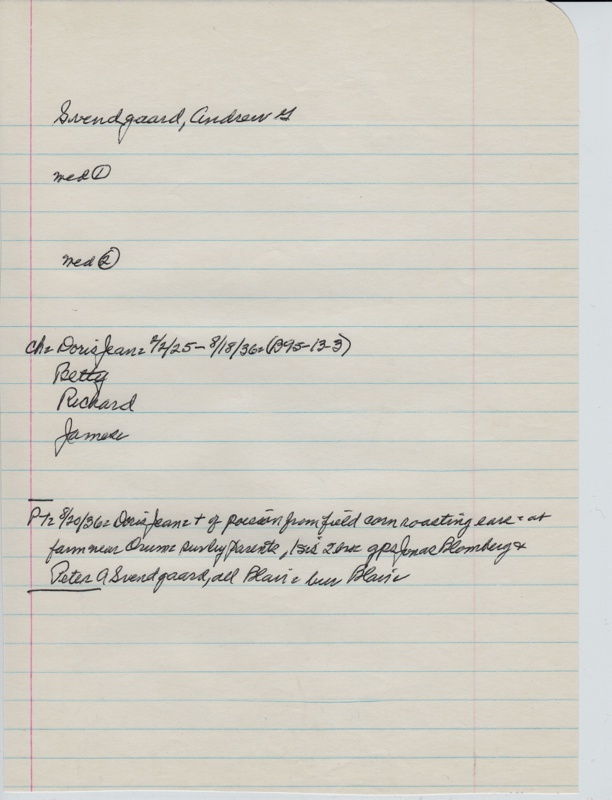 Svendgaard, Andrew G
med ①
med ②
ch= Doris Jean= 2/2/25 - 8/18/36= (B95-13-3)
Betty
Richard
James=
PT= 8/20/36= Doris Jean= + of poison from field corn roasting ears = at
farm near Orum= surv by parents, 1 sis 2 bro= gps Jonas Blomberg &
Peter A Svendgaard, all Blair= bur Blair=